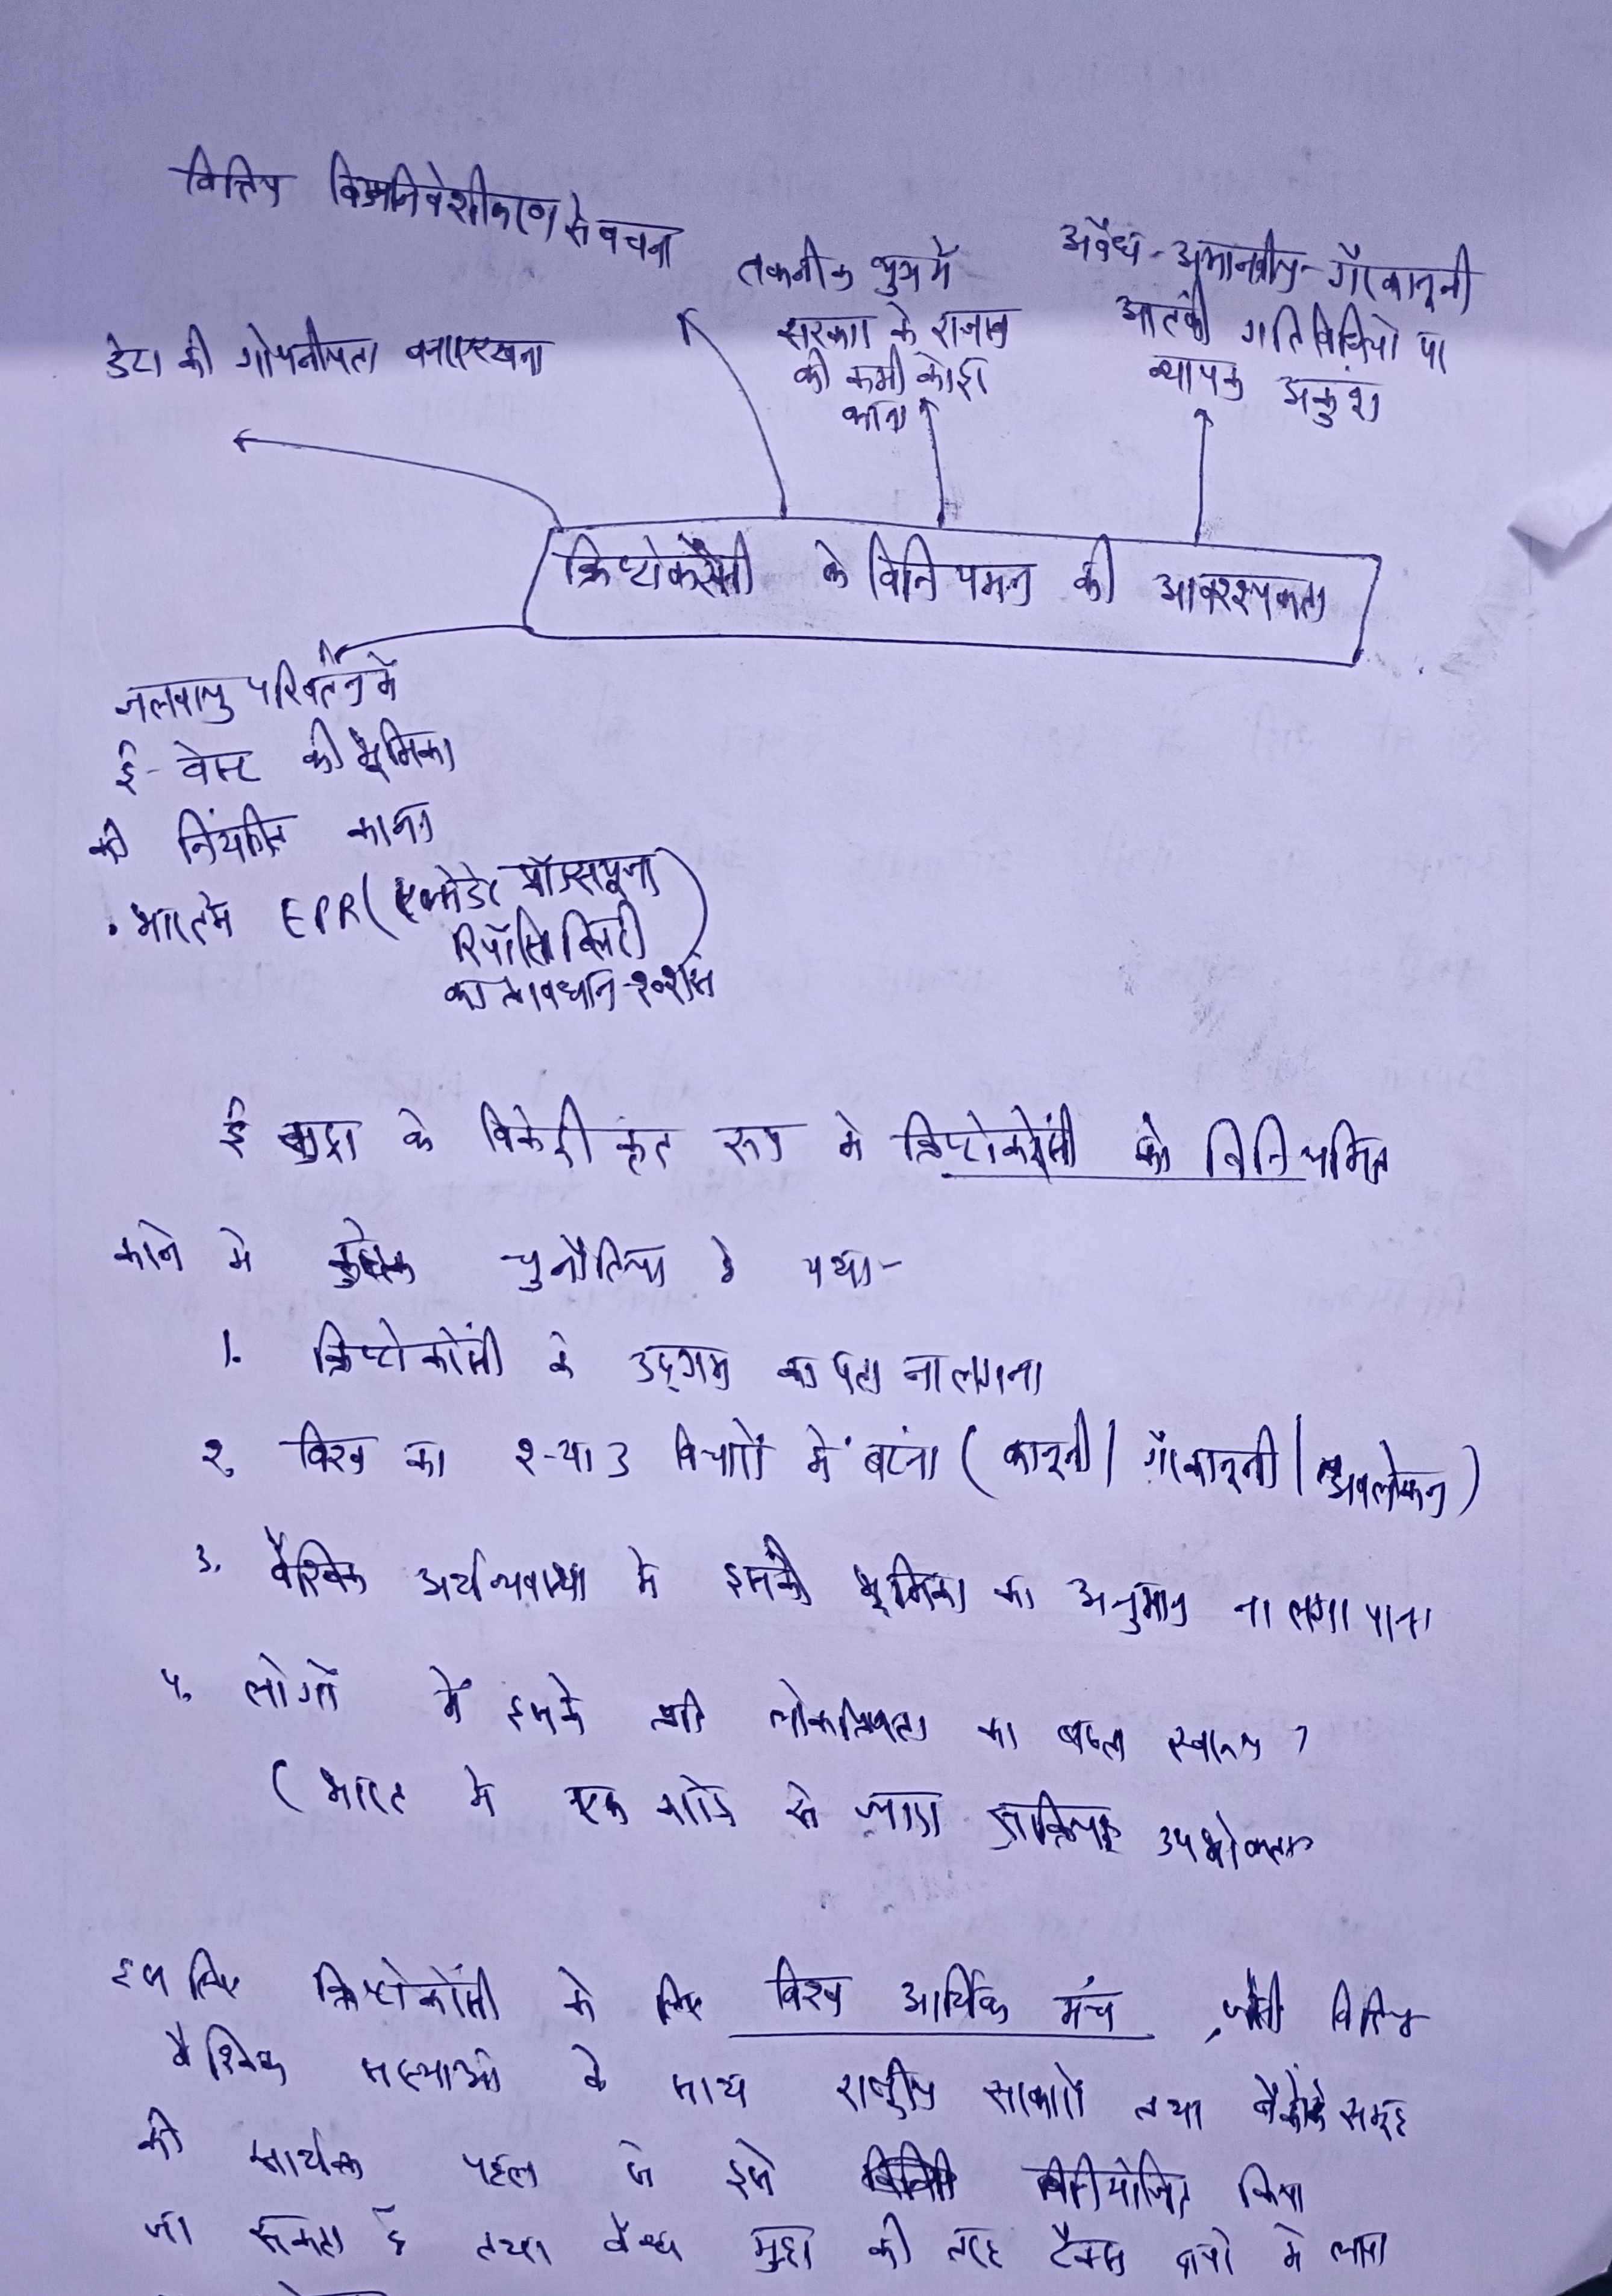 वित्तिय विऔपनिवेशीकरण से बचना
तकनीक युग में
सरकार के राजस्व
की कमी को दूर
करना
अवैध - अमानवीय - गैरकानूनी
आतंकी गतिविधियो पर
व्यापक अकुंश
डेटा की गोपनीयता बनाए रखना
क्रिप्टोकरेंसी के विनियमन की आवश्यकता
जलवायु परिवर्तन में
ई-वेस्ट की भूमिका
को नियंत्रित करना
• भारत में EPR (
रिस्पॉसिबिलिटी)
का प्रावधान-
ई मुद्रा के विकेंद्रीकृत रूप मे क्रिप्टोकरेंसी को विनियमित
करने मे चुनौतिया है यथा-
1. क्रिप्टोकरेंसी के उद्गम का पता ना लगना
२. विश्व का २-या 3 विचारों में बटंना (कानूनी | गैरकानूनी | अवलोकन)
3. वैश्विक अर्थव्यवस्था मे इसकी भूमिका का अनुमान ना लगा पाना
4. लोगों में इसके प्रति लोकप्रियता का बढता स्वरूप,
(भारत मे एक करोड से ज्यादा सक्रिय उपभोक्ता
इसलिए क्रिप्टोकरेंसी के लिए विश्व आर्थिक मंच, जैसी वित्तिय
वैश्विक संस्थाओ के साथ राष्ट्रीय सरकारों तथा बैंको के समूह
की सार्थक पहल से इसे विनियोजित किया
जा सकता है तथा वैश्य मुद्रा की तरह टैक्स दायरे मे लाया